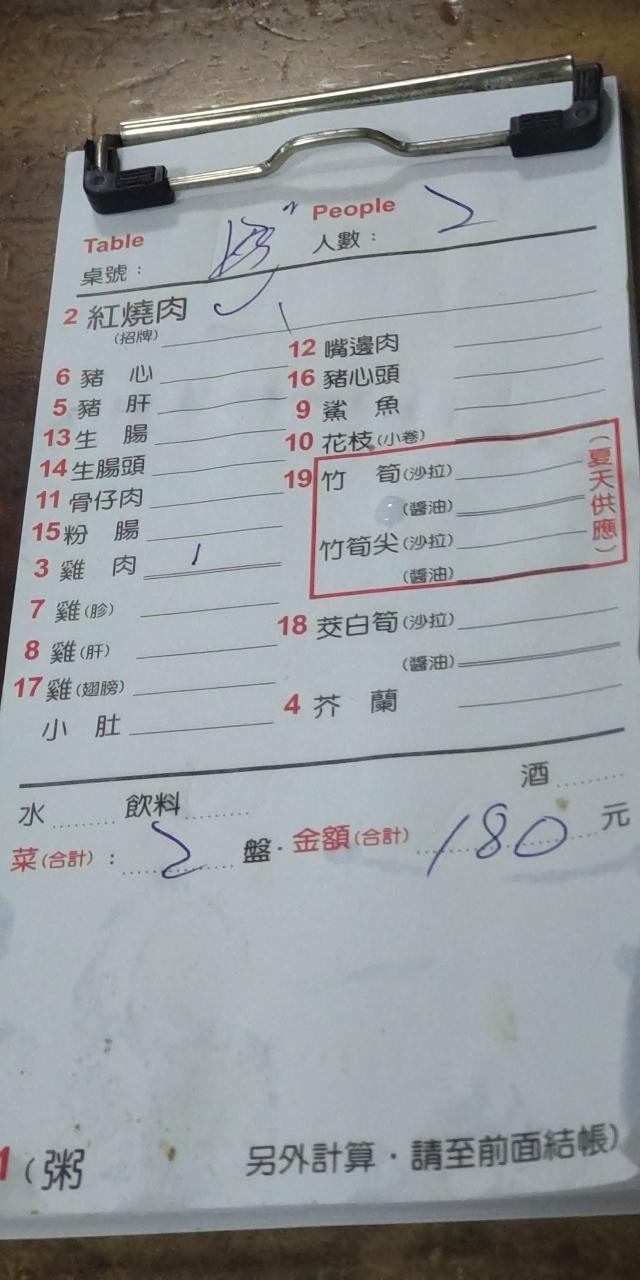 People 2
Table
人數：
桌號：
2 紅燒肉
(招牌)
12 嘴邊肉
6 豬心
16 豬心頭
5 豬肝
9 鯊魚
13 生腸
10 花枝(小卷)
14 生腸頭
19 竹筍(沙拉)
(夏天供應)
11 骨仔肉
(醬油)
15 粉腸
竹筍尖(沙拉)
3 雞肉 1
(醬油)
7 雞(胗)
18 茭白筍(沙拉)
8 雞(肝)
(醬油)
17 雞(翅膀)
4 芥蘭
小肚
酒
水 飲料
菜(合計)： 2 盤·金額(合計) 180 元
1 (粥 另外計算·請至前面結帳)